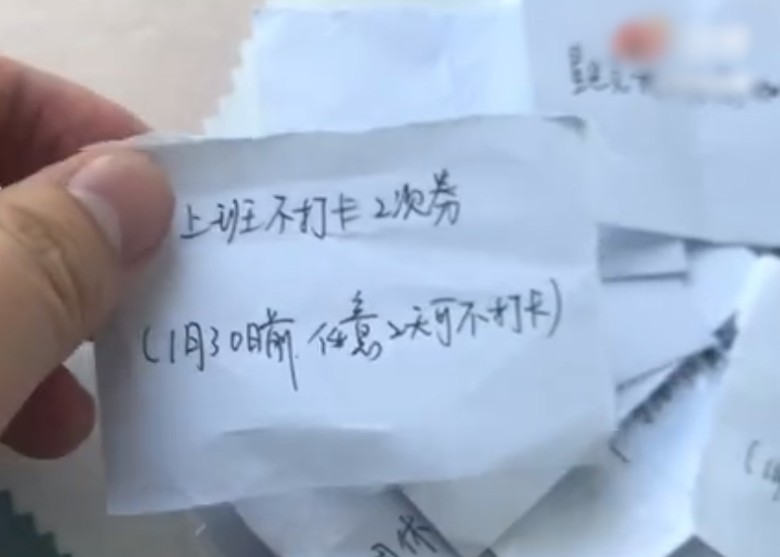 上班不打卡2次券
(1月30日前.任意2天可不打卡)